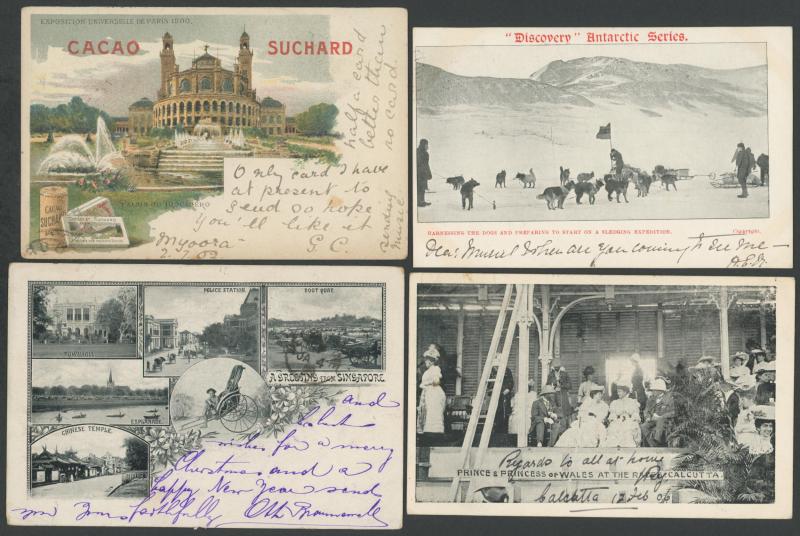 EXPOSITION UNIVERSELLE DE PARIS 1900.
CACAO SUCHARD
PALAIS DU TROCADERO
CACAO
SUCHARD
Only card I have
at present to
send so hope
you'll like it
G.C.
Myoora
2.7.02
half a card
better than
no card.
sending
music
"Discovery" Antarctic Series.
HARNESSING THE DOGS AND PREPARING TO START ON A SLEDGING EXPEDITION.
Copyright.
Dear Muriel when are you coming to see me—
TOWNHALL
POLICE STATION.
BOAT QUAY.
ESPLANADE
CHINESE TEMPLE.
A GREETING FROM SINGAPORE
and
best
wishes for a merry
Christmas and a
happy New Year send
Yours faithfully Otto
PRINCE & PRINCESS OF WALES AT THE CALCUTTA.
Regards to all at home
Calcutta 12 Feb 06